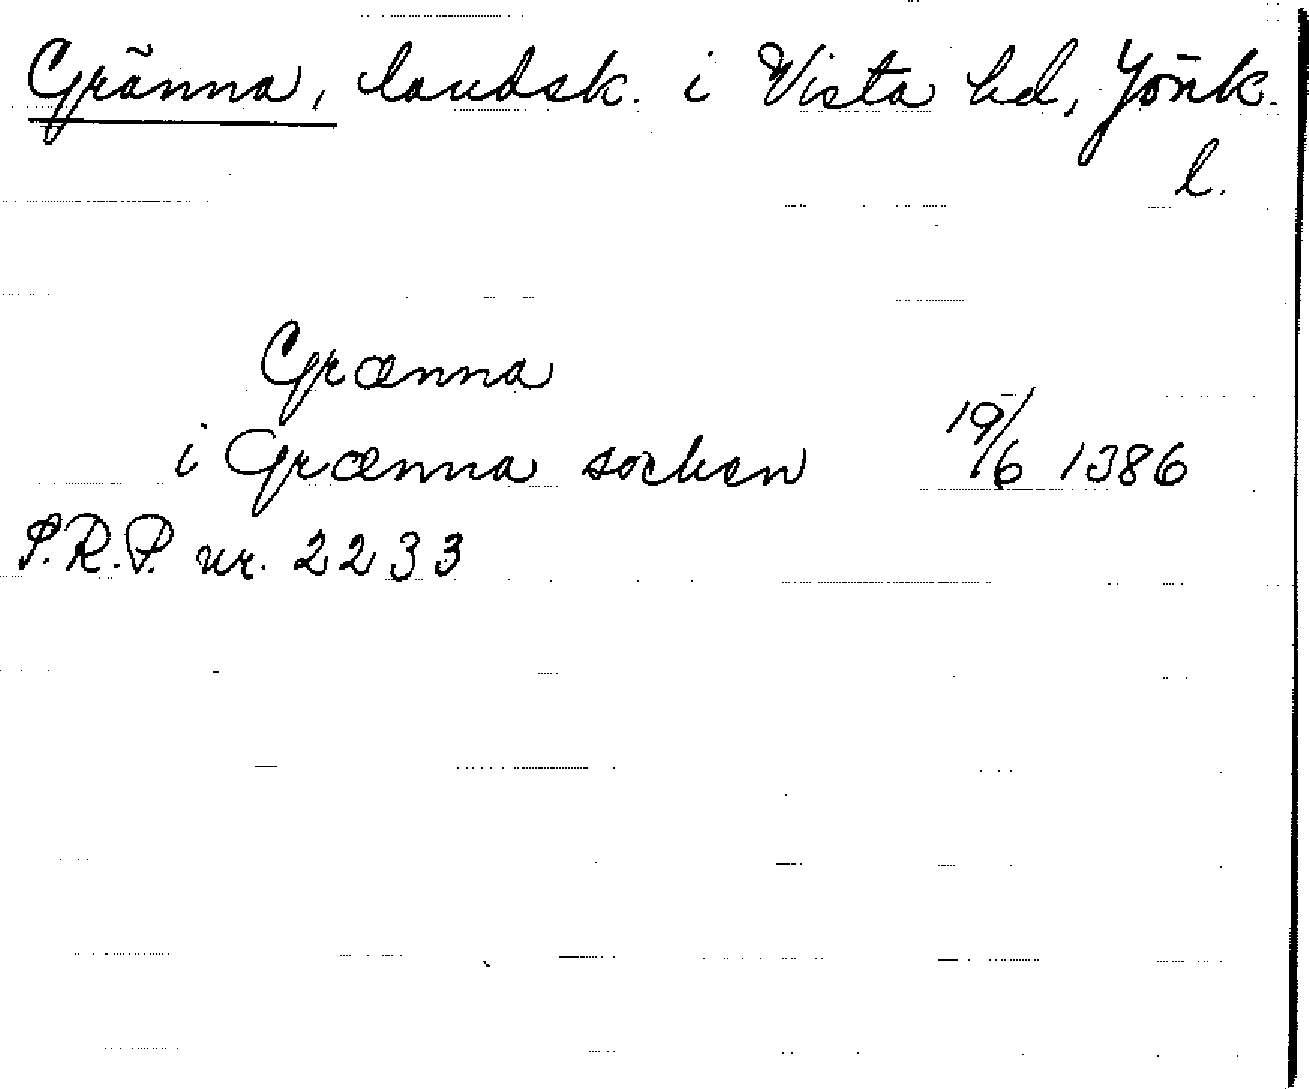 Gränna, landsk. i Vista hd, Jönk.
l.
Grænna
i Grænna socken 19/6 1386
S.R.P. nr. 2233